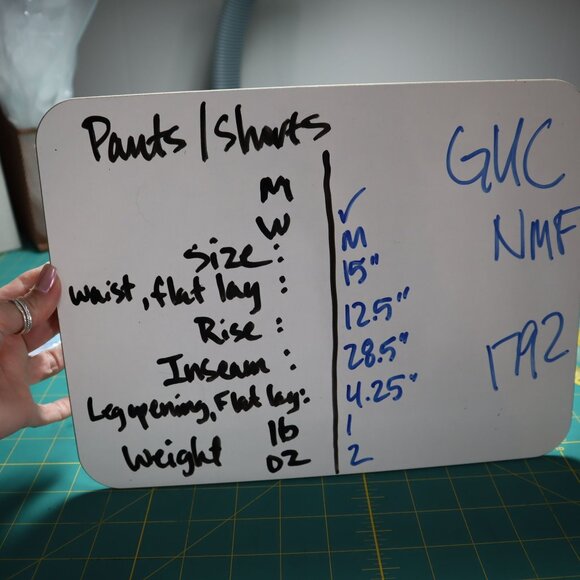 Pants/Shorts
GUC
M
W ✓
NMF
Size: M
Waist, flat lay: 15"
Rise: 12.5"
Inseam: 28.5"
1792
Leg opening, Flat lay: 4.25"
Weight lb 1
oz 2